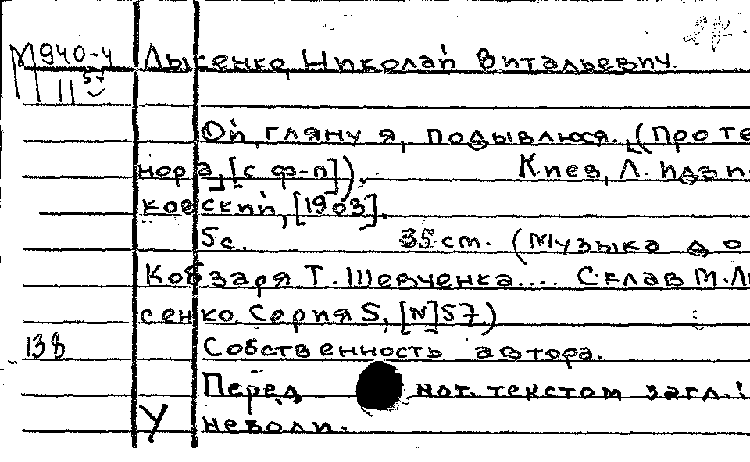 М940-4 Лысенко, Николай Витальевич.
11 57
Ой, гляну я, подывлюся. (Про те
нора, [с ф-п]). Киев, Л. Идзи
ковский, [1903].
5с. 35cm. (Музыка до
Кобзаря Т. Шевченка.... Склав М. Ли
сенко. Серия 5, [N]57)
138 Собственность автора.
Перед нот. текстом загл.:
У неволи.